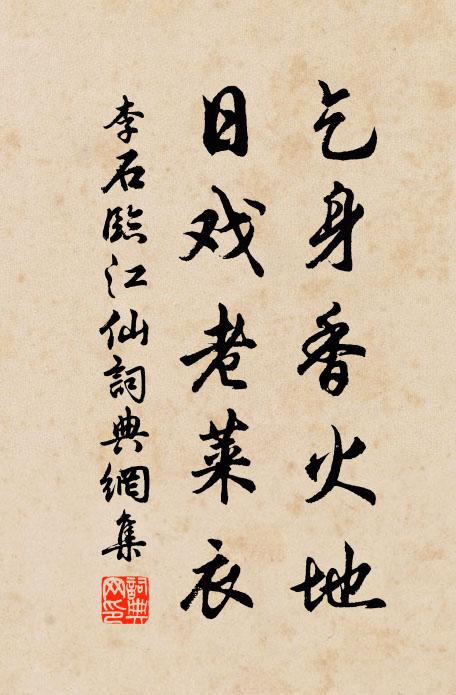 乞身香火地
日戏老莱衣
李石臨江仙詞典網集
詞典網印